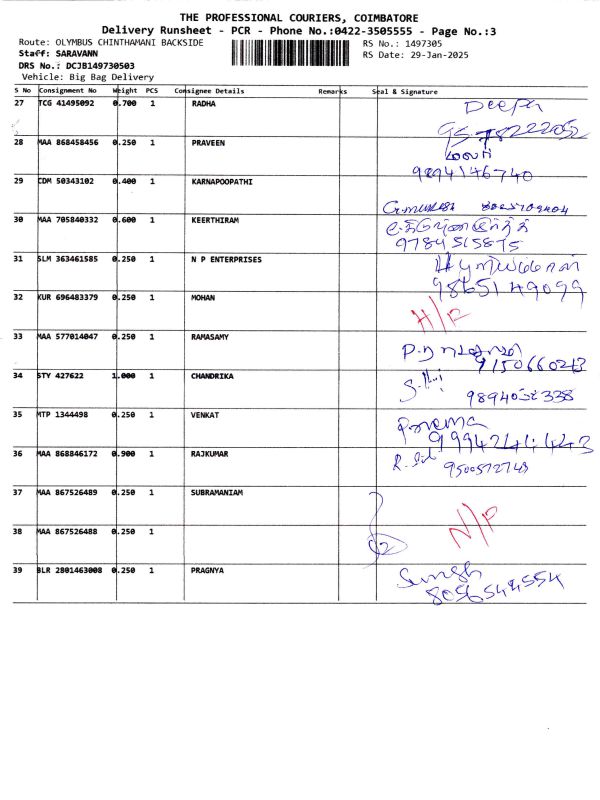 THE PROFESSIONAL COURIERS, COIMBATORE
Delivery Runsheet - PCR - Phone No.:0422-3505555 - Page No.:3
Route: OLYMBUS CHINTHAMANI BACKSIDE
RS No.: 1497305
Staff: SARAVANN
RS Date: 29-Jan-2025
DRS No.: DCJB149730503
Vehicle: Big Bag Delivery
S No Consignment No Weight PCS Consignee Details Remarks Seal & Signature
27 TCG 41495092 0.700 1 RADHA Deepa
28 MAA 868458456 0.250 1 PRAVEEN
9894146740
29 CDM 50343102 0.400 1 KARNAPOOPATHI
30 MAA 705840332 0.600 1 KEERTHIRAM
9784515875
31 SLM 363461585 0.250 1 N P ENTERPRISES
9865149099
32 KUR 696483379 0.250 1 MOHAN
33 MAA 577014047 0.250 1 RAMASAMY
9150660213
34 STY 427622 1.000 1 CHANDRIKA
35 MTP 1344498 0.250 1 VENKAT Prema
9994244443
36 MAA 868846172 0.900 1 RAJKUMAR
9500572743
37 MAA 867526489 0.250 1 SUBRAMANIAM
38 MAA 867526488 0.250 1 N/P
39 BLR 2801463008 0.250 1 PRAGNYA
8056544554